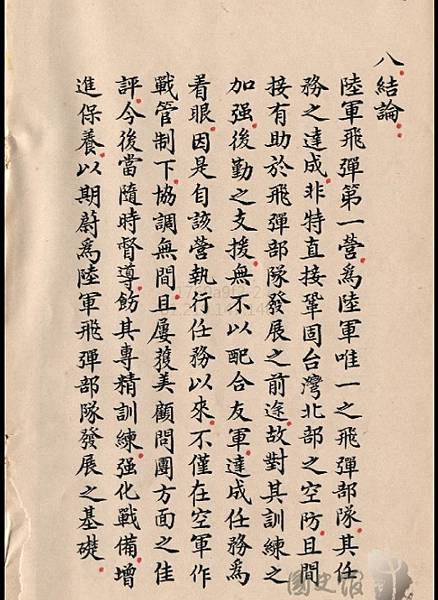 八、結論：
陸軍飛彈第一營、為陸軍唯一之飛彈部隊、其任
務之達成、非特直接鞏固台灣北部之空防、且間
接有助於飛彈部隊發展之前途、故對其訓練之
加强、後勤之支援、無不以配合友軍、達成任務為
着眼、因是自該營執行任務以來、不僅在空軍作
戰管制下、協調無間、且屢獲美顧問團方面之佳
評、今後當隨時督導、飭其專精訓練、强化戰備、增
進保養、以期蔚為陸軍飛彈部隊發展之基礎。
國史館